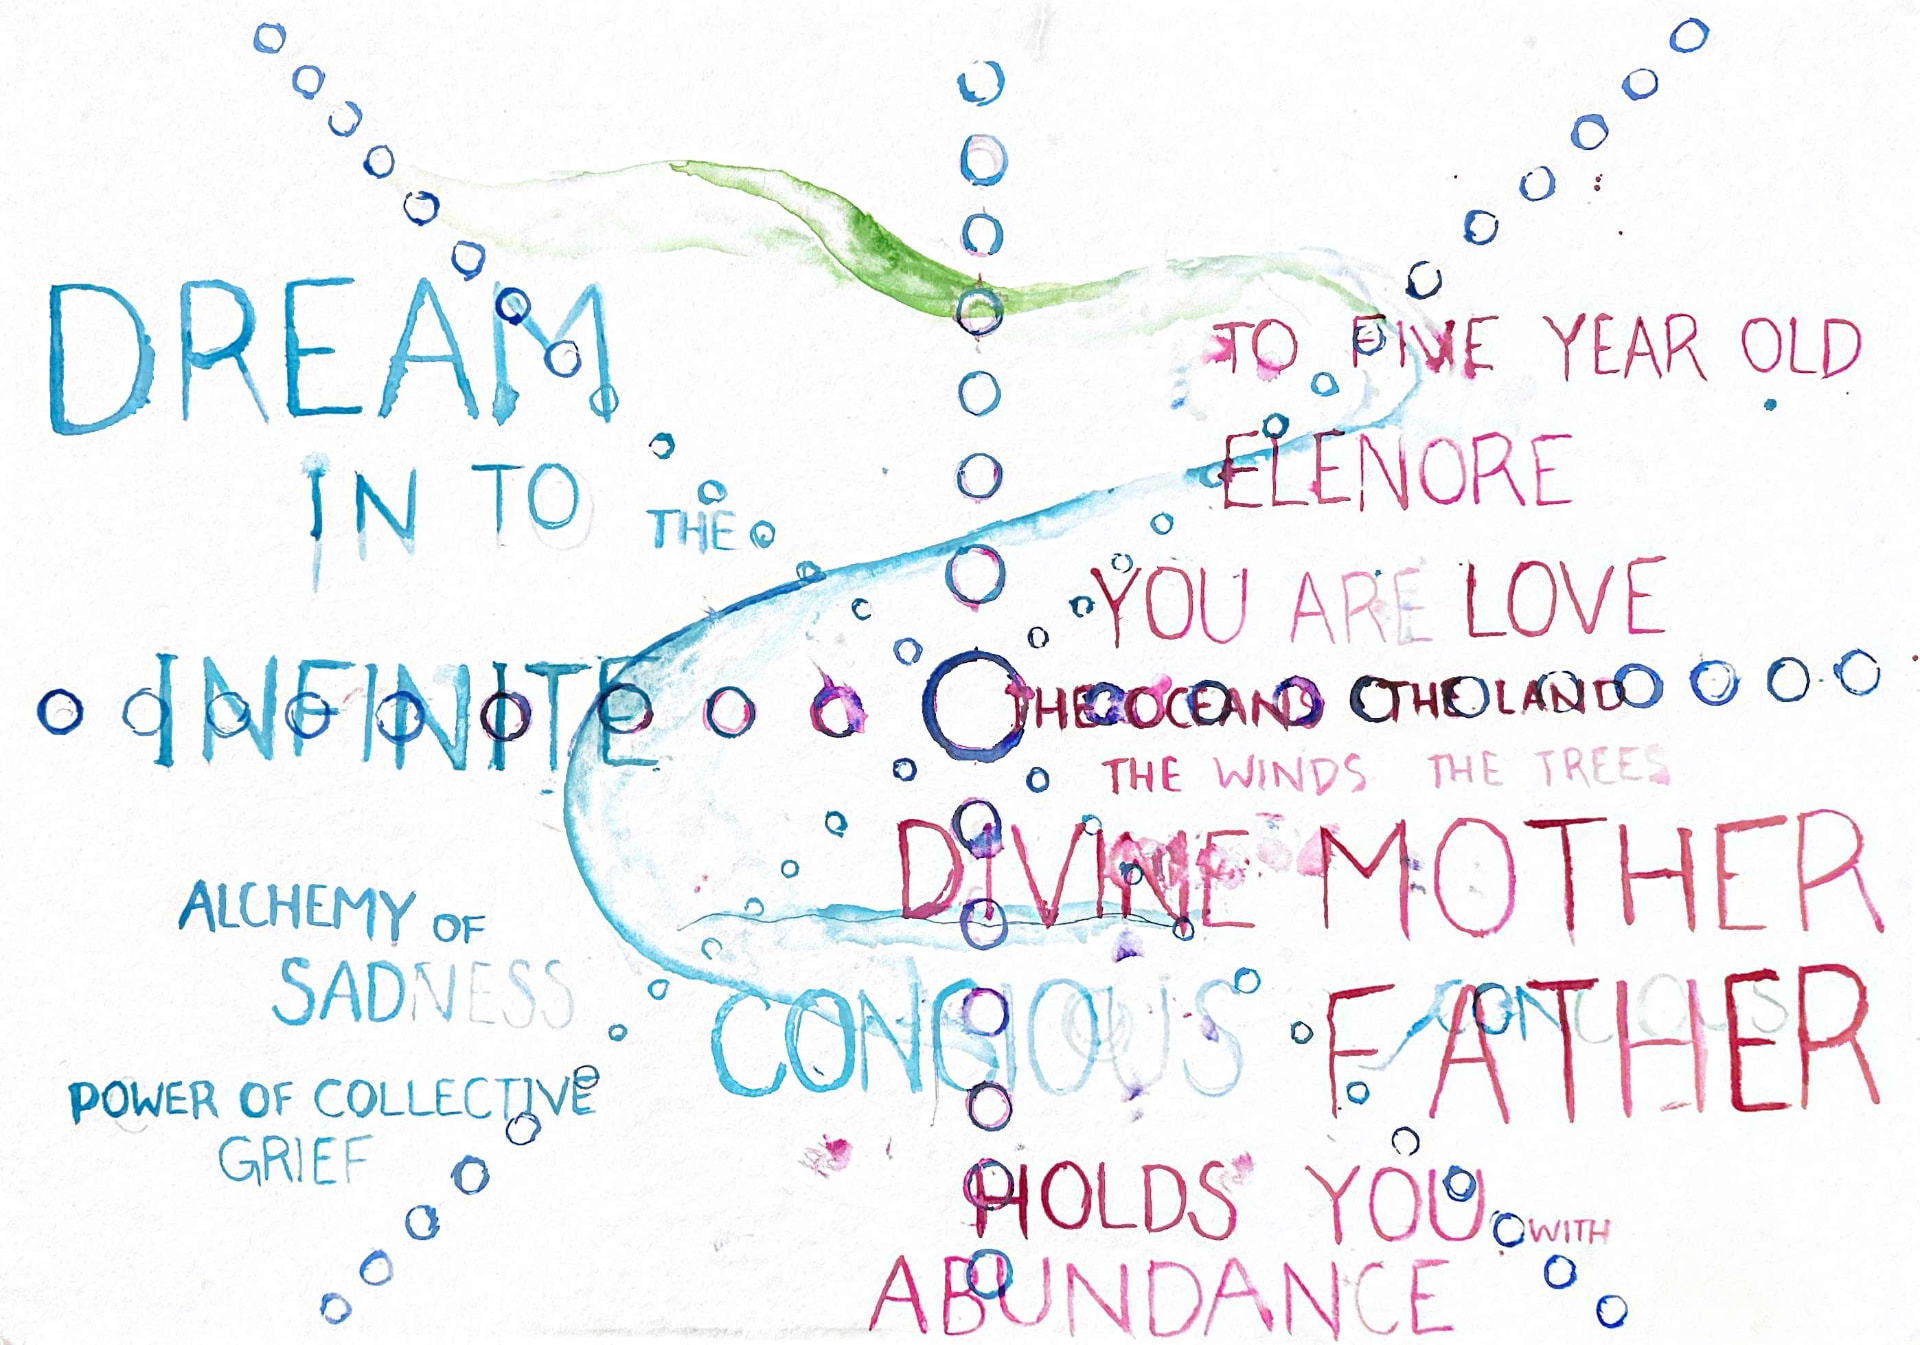 DREAM
IN TO THE
INFINITE
ALCHEMY OF
SADNESS
POWER OF COLLECTIVE
GRIEF
TO FIVE YEAR OLD
ELENORE
YOU ARE LOVE
THE OCEANS THE LAND
THE WINDS THE TREES
DIVINE MOTHER
CONCIOUS FATHER
CONCIOUS
HOLDS YOU WITH
ABUNDANCE